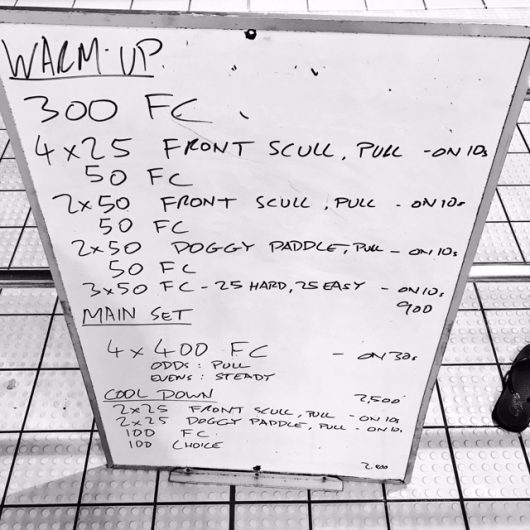 WARM-UP
300 FC
4x25 FRONT SCULL, PULL - ON 10s
50 FC
2x50 FRONT SCULL, PULL - ON 10s
50 FC
2x50 DOGGY PADDLE, PULL - ON 10s
50 FC
3x50 FC - 25 HARD, 25 EASY - ON 10s
900
MAIN SET
4x400 FC - ON 30s
ODDS: PULL
EVENS: STEADY
2,500
COOL DOWN
2x25 FRONT SCULL, PULL - ON 10s
2x25 DOGGY PADDLE, PULL - ON 10s
100 FC
100 CHOICE